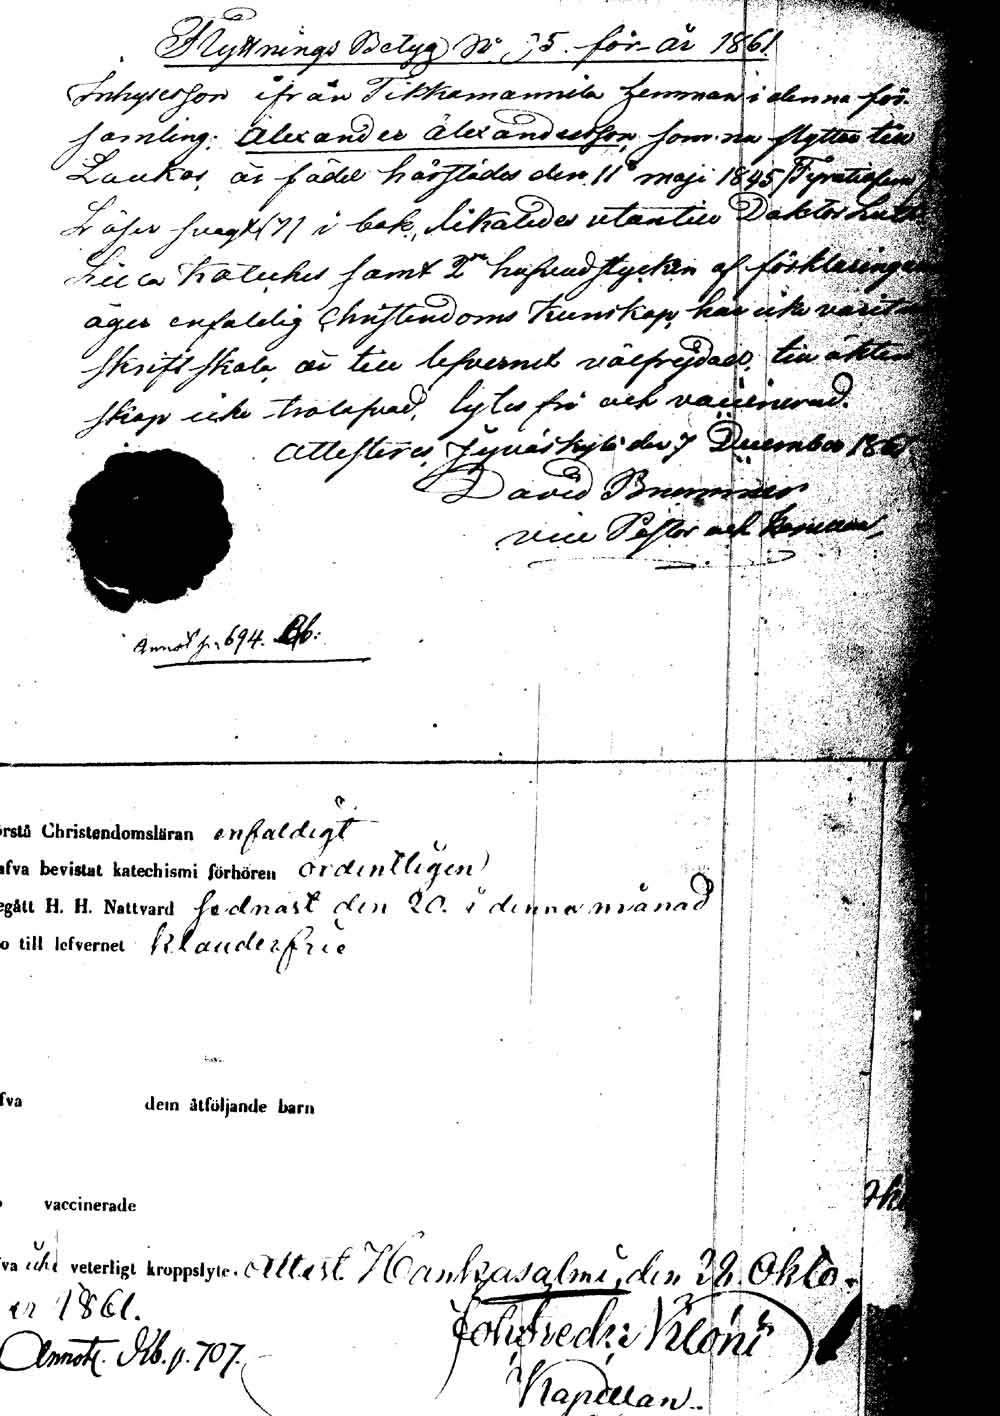 Flyttnings Betyg No 75. för år 1861.
Inhysesson ifrån Tikkamannila hemman i denna för-
samling, Alexander Alexandersson, som nu flyttar till
Laukas, är född härstädes den 11 maji 1845 (Fyratiofem)
Läser svagt (7) i bok, likaledes utantill Doktor Luth.
Lilla Katekes samt 2ne hufvudstycken af förklaringen
äger enfaldig Christendoms Kunskap, har icke varit i
skriftskola, är till lefvernet välfrejdad, till äkten
skap icke trolofvad, lytes fri och vaccinerad.
Attesteras, Jyväskylä den 7 December 1861.
David
vice Pastor och
Annot p. 694. Kb:
örstå Christendomsläran enfaldigt
afva bevistat katechismi förhören ordentligen
egått H. H. Nattvard sednast den 20. i denna månad
o till lefvernet klanderfrie
fva dem åtföljande barn
vaccinerade
fva icke veterligt kroppslyte. Attest. Hankasalmi, den Okto-
er 1861.
Annot. Kb. p. 707.
Kapellan.